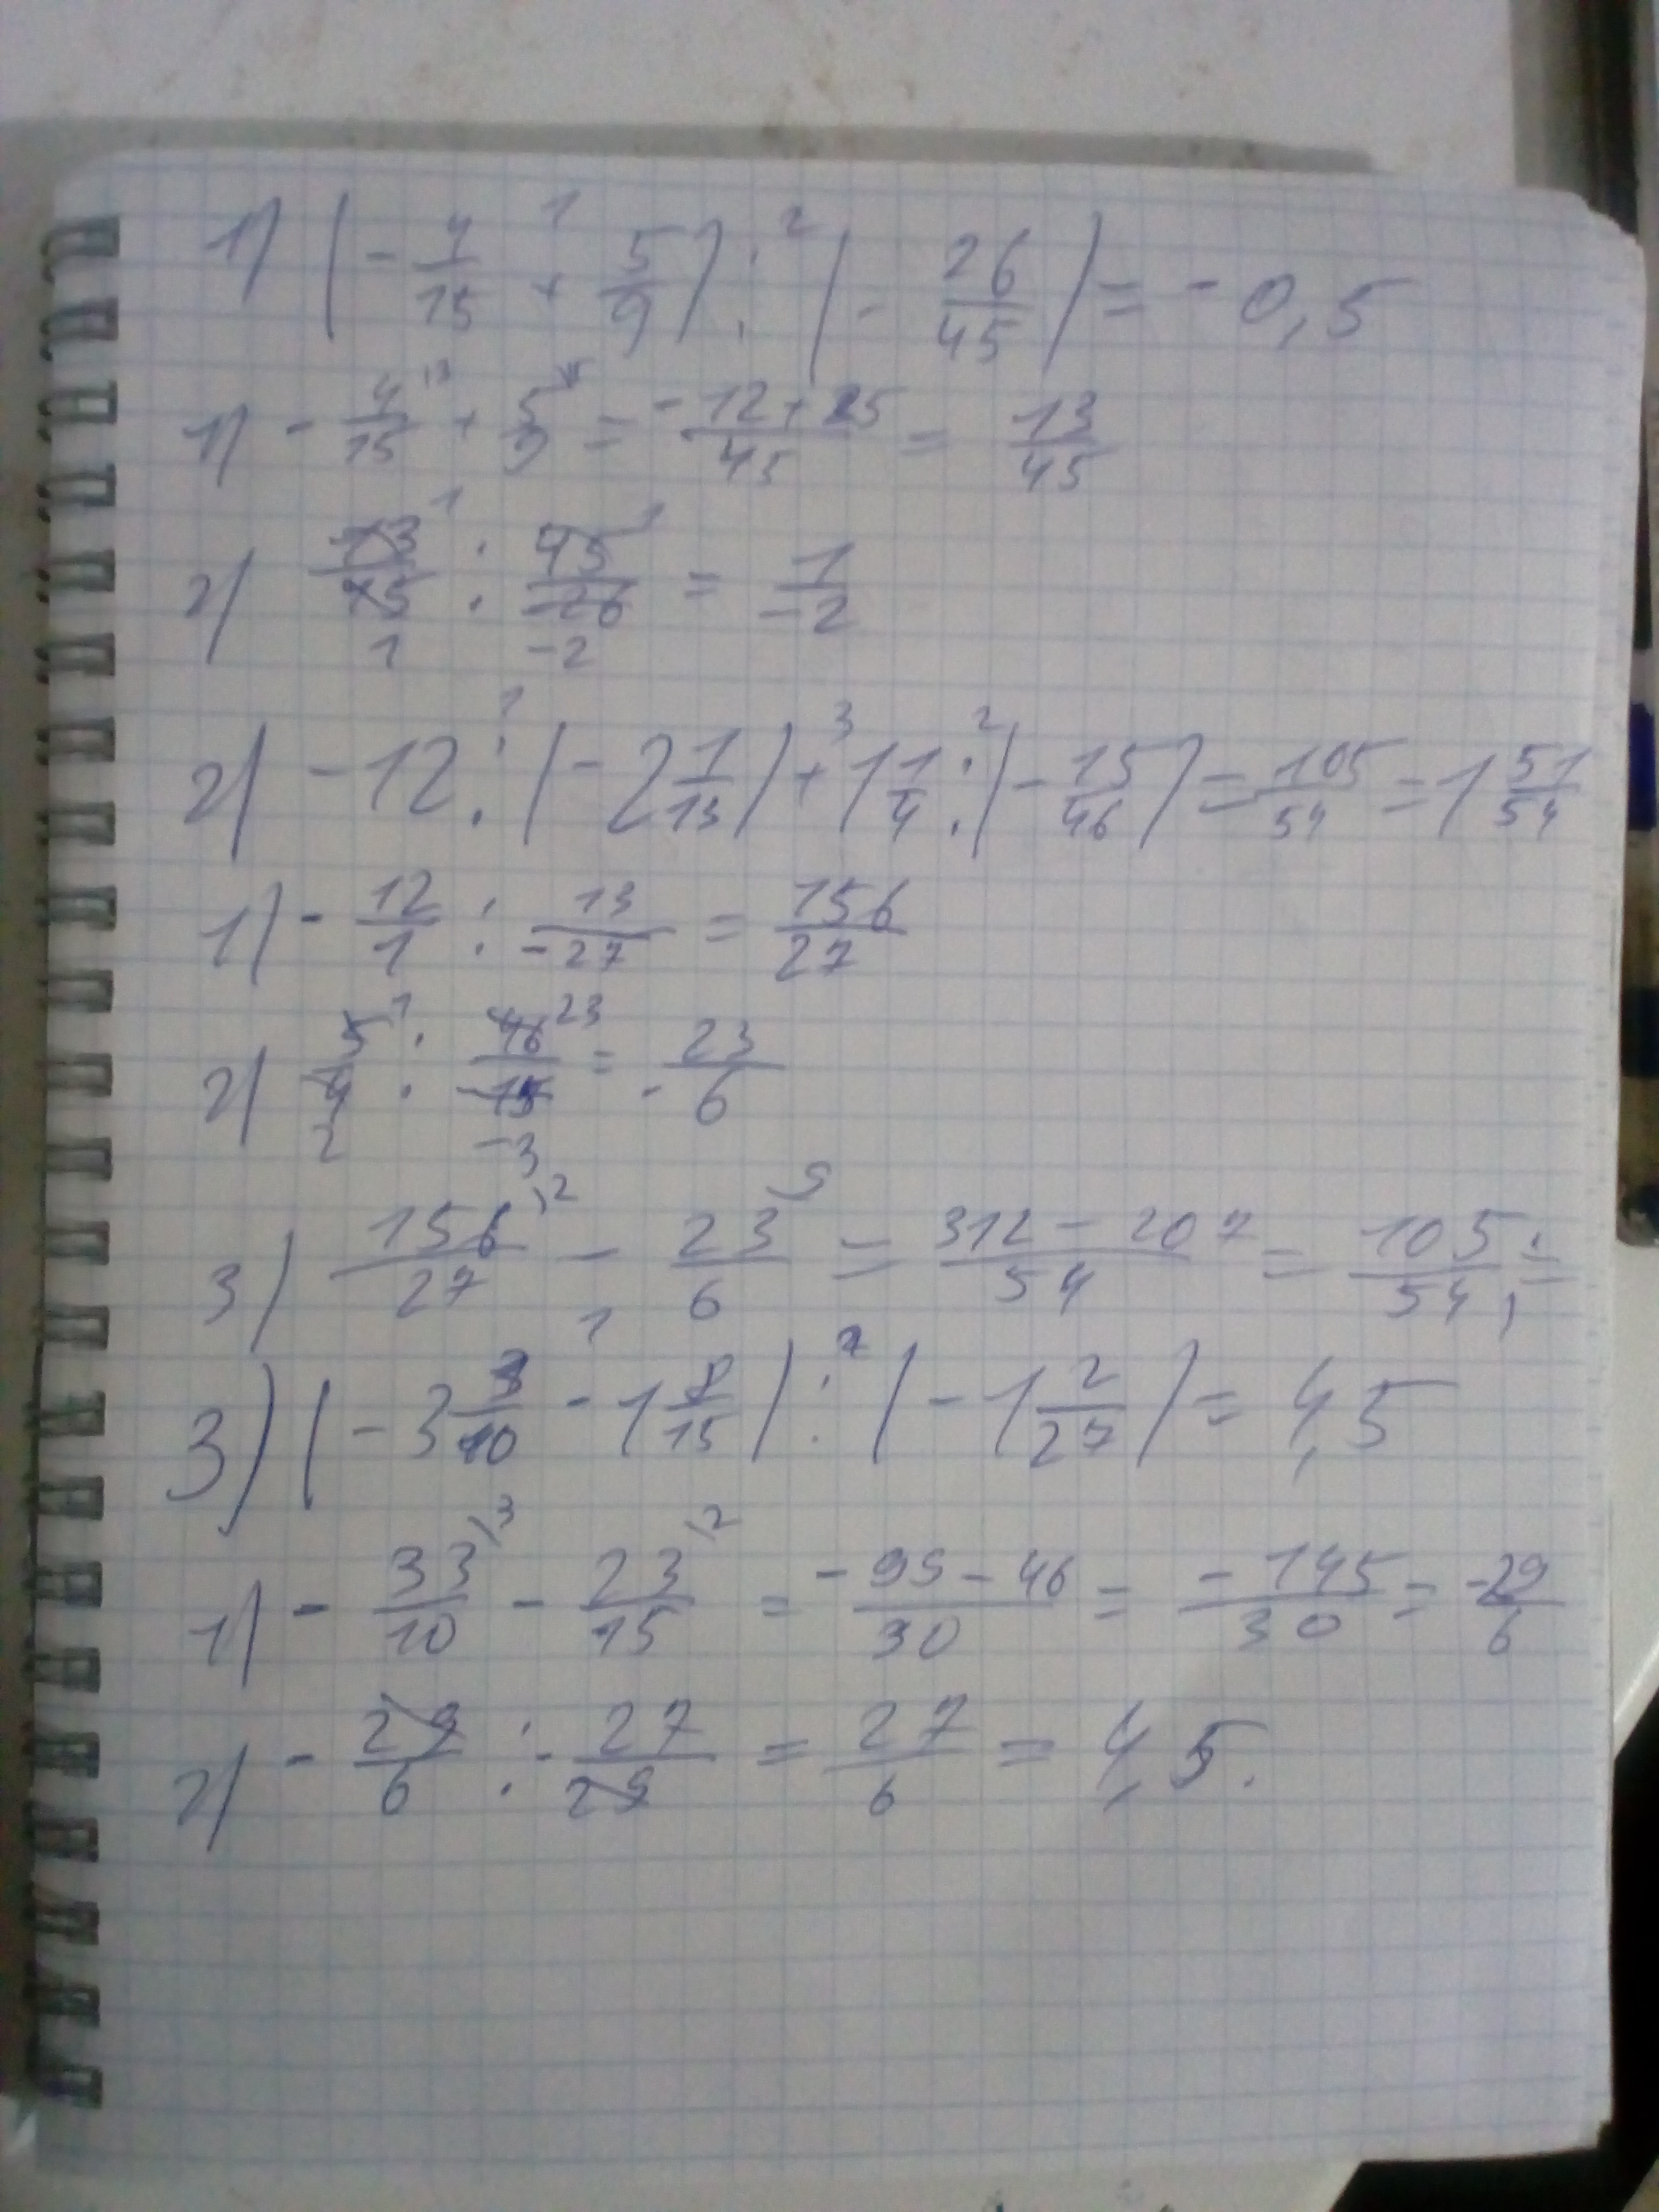 1) (-4/15 + 5/9) : (-26/45) = -0,5
1) -4/15 + 5/9 = -12+25/45 = 13/45
2) 13/45 : 45/-26 = 1/-2
2) -12 : (-2 1/13) + 1 1/4 : (-15/46) = 105/54 = 1 51/54
1) -12/1 : 13/-27 = 156/27
2) 5/4 : 46/-15 = -23/6
3) 156/27 - 23/6 = 312-207/54 = 105/54 =
3) (-3 3/10 - 1 8/15) : (-1 2/27) = 4,5
1) -33/10 - 23/15 = -99-46/30 = -145/30 = -29/6
2) -29/6 : -27/29 = 27/6 = 4,5.